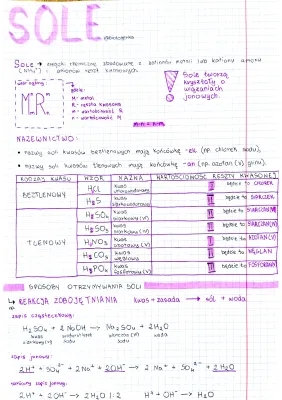 SOLE
Sole → związki chemiczne zbudowane z kationów metali lub kationu amonu
(NH₄⁺) i anionów reszt kwasowych.
wzór ogólny:
gdzie:
M - metal
R - reszta kwasowa
m - wartościowość R
n - wartościowość M
Sole tworzą
kryształy o
wiązaniach
jonowych.
NAZEWNICTWO:
• nazwy soli kwasów beztlenowych mają końcówkę -ek (np. chlorek sodu),
• nazwy soli kwasów tlenowych mają końcówkę -an (np. azotan (V) glinu).
RODZAJ KWASU WZÓR NAZWA WARTOŚCIOWOŚĆ RESZTY KWASOWEJ
BEZTLENOWY
HCl kwas chlorowodorowy I będzie to CHLOREK
H₂S kwas siarkowodorowy II będzie to SIARCZEK
TLENOWY
H₂SO₄ kwas siarkowy (VI) II będzie to SIARCZAN (VI)
H₂SO₃ kwas siarkowy (IV) II będzie to SIARCZAN (IV)
HNO₃ kwas azotowy (V) I będzie to AZOTAN (V)
H₂CO₃ kwas węglowy II będzie to WĘGLAN
H₃PO₄ kwas fosforowy (V) III będzie to FOSFORAN (V)
SPOSOBY OTRZYMYWANIA SOLI
↳ REAKCJA ZOBOJĘTNIANIA kwas + zasada → sól + woda
zapis cząsteczkowy:
H₂SO₄ + 2 NaOH → Na₂SO₄ + 2H₂O
zapis jonowy:
2H⁺ + SO₄²⁻ + 2 Na⁺ + 2OH⁻ → 2 Na⁺ + SO₄²⁻ + 2H₂O
skrócony zapis jonowy:
2H⁺ + 2OH⁻ → 2H₂O 1:2 H⁺ + OH⁻ → H₂O